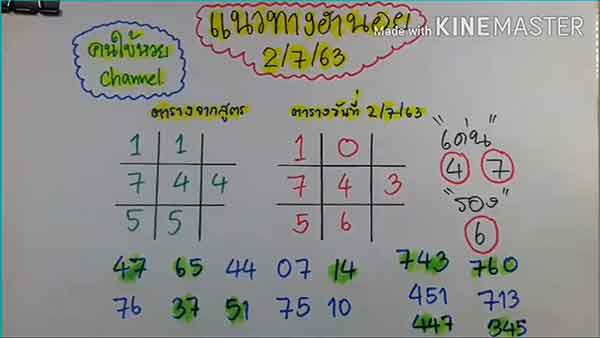 แนวทางฮานอย
Made with KINEMASTER
2/7/63
คนใบ้หวย
Channel
ตารางจากสูตร
ตารางวันที่ 2/7/63
1 1
7 4 4
5 5
1 0
7 4 3
5 6
"เด่น"
4 7
"รอง"
6
47 65 44 07 14
76 37 51 75 10
743 760
451 713
447 345